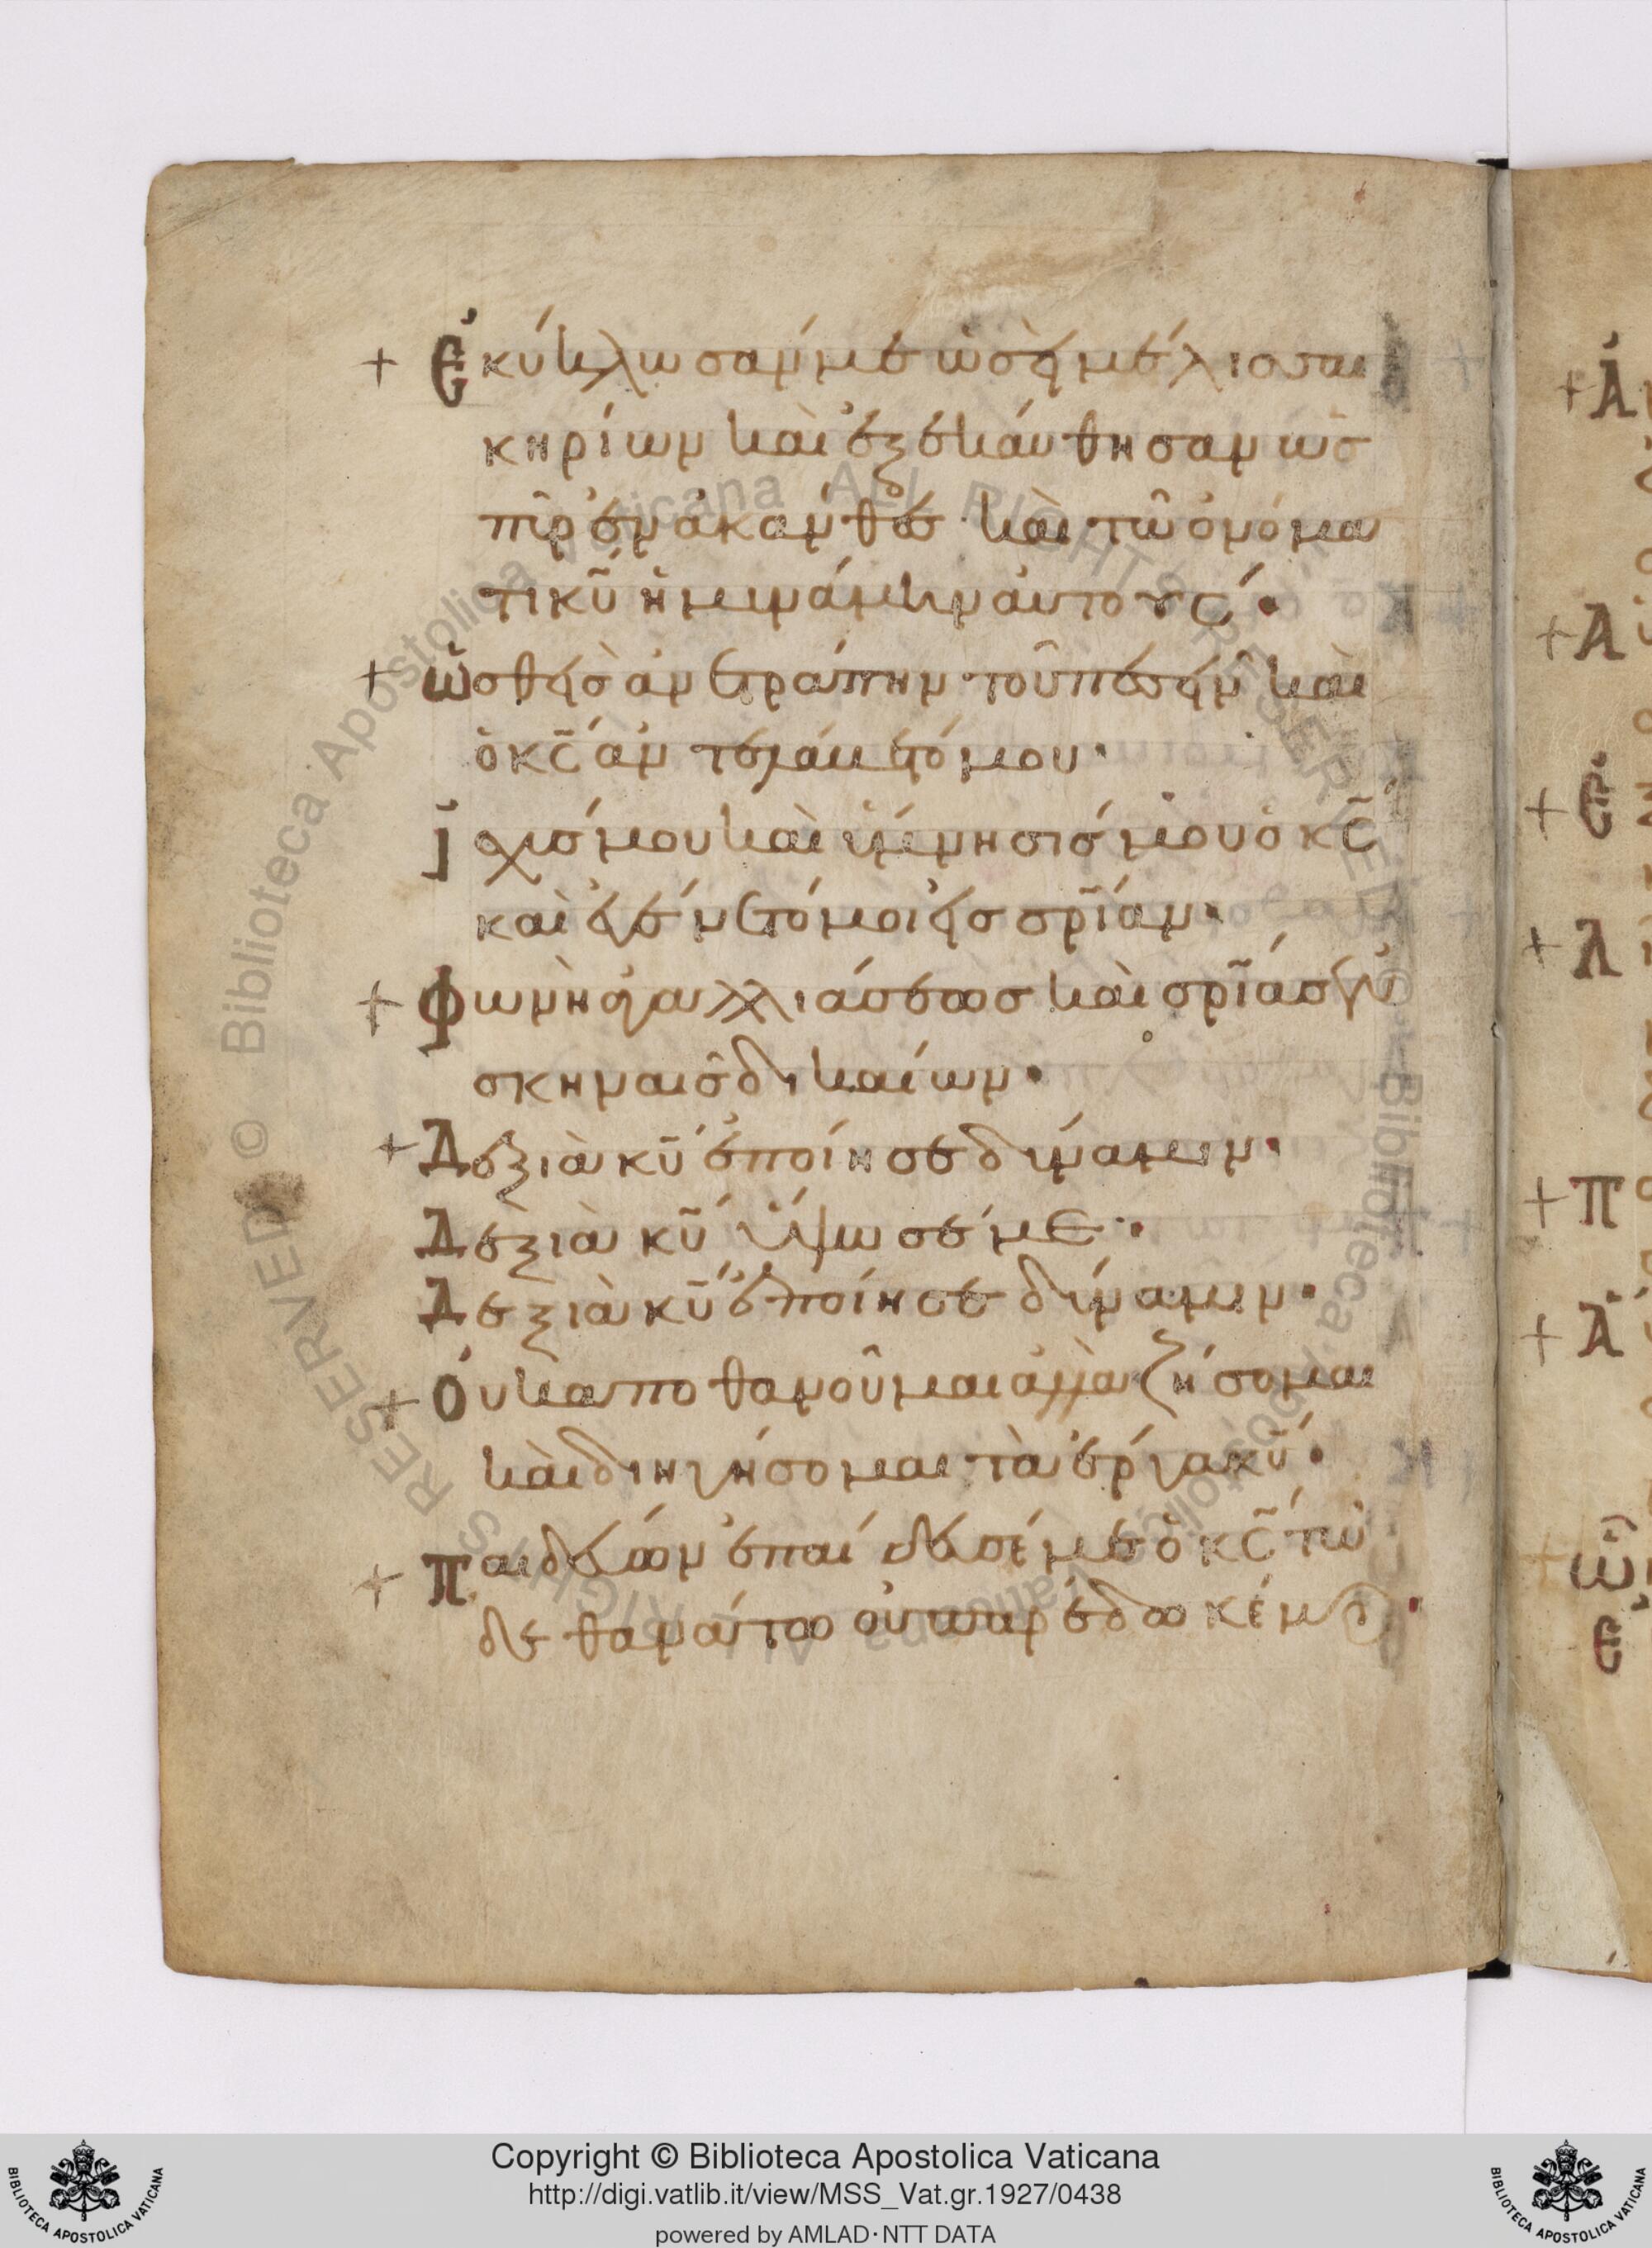 + Ἐκύκλωσάν με ὡσεὶ μέλισσαι
κηρίων καὶ ἐξεκάυθησαν ὡς
πῦρ ἐν ἀκάνθαις· καὶ τῶ ὀνόμα
τι κ̅υ̅ ἠμυνάμην ἀυτούς·
+ ὠσθεὶς ἀνετράπην τοῦ πεσεῖν καὶ
ὁ κ̅ς̅ ἀντελάβετό μου·
Ἰσχύς μου καὶ ὕμνησίς μου ὁ κ̅ς̅
καὶ ἐγένετό μοι εἰς σ̅ρ̅ίαν·
+ Φωνὴ ἀγαλλιάσεως καὶ σ̅ρ̅ίας ἐν
σκηναῖς δικαίων·
+ Δεξιὰ κ̅υ̅ ἐποίησε δύναμιν·
Δεξιὰ κ̅υ̅ ὕψωσέ με·
Δεξιὰ κ̅υ̅ ἐποίησε δύναμιν·
+ Ὀυκ αποθανοῦμαι ἀλλὰ ζήσομαι
καὶ διηγήσομαι τὰ ἔργα κ̅υ̅·
+ Παιδεύων ἐπαίδευσέ με ὁ κ̅ς̅ τῶ
δε θανάτω ὀυ παρέδωκέ με·
+Ἀ
+Α
+Ἐ
+Λ
+Π
+Ἀ
Ὠ
Ἐ
Copyright © Biblioteca Apostolica Vaticana
http://digi.vatlib.it/view/MSS_Vat.gr.1927/0438
powered by AMLAD·NTT DATA
BIBLIOTECA APOSTOLICA VATICANA
BIBLIOTECA APOSTOLICA VATICANA